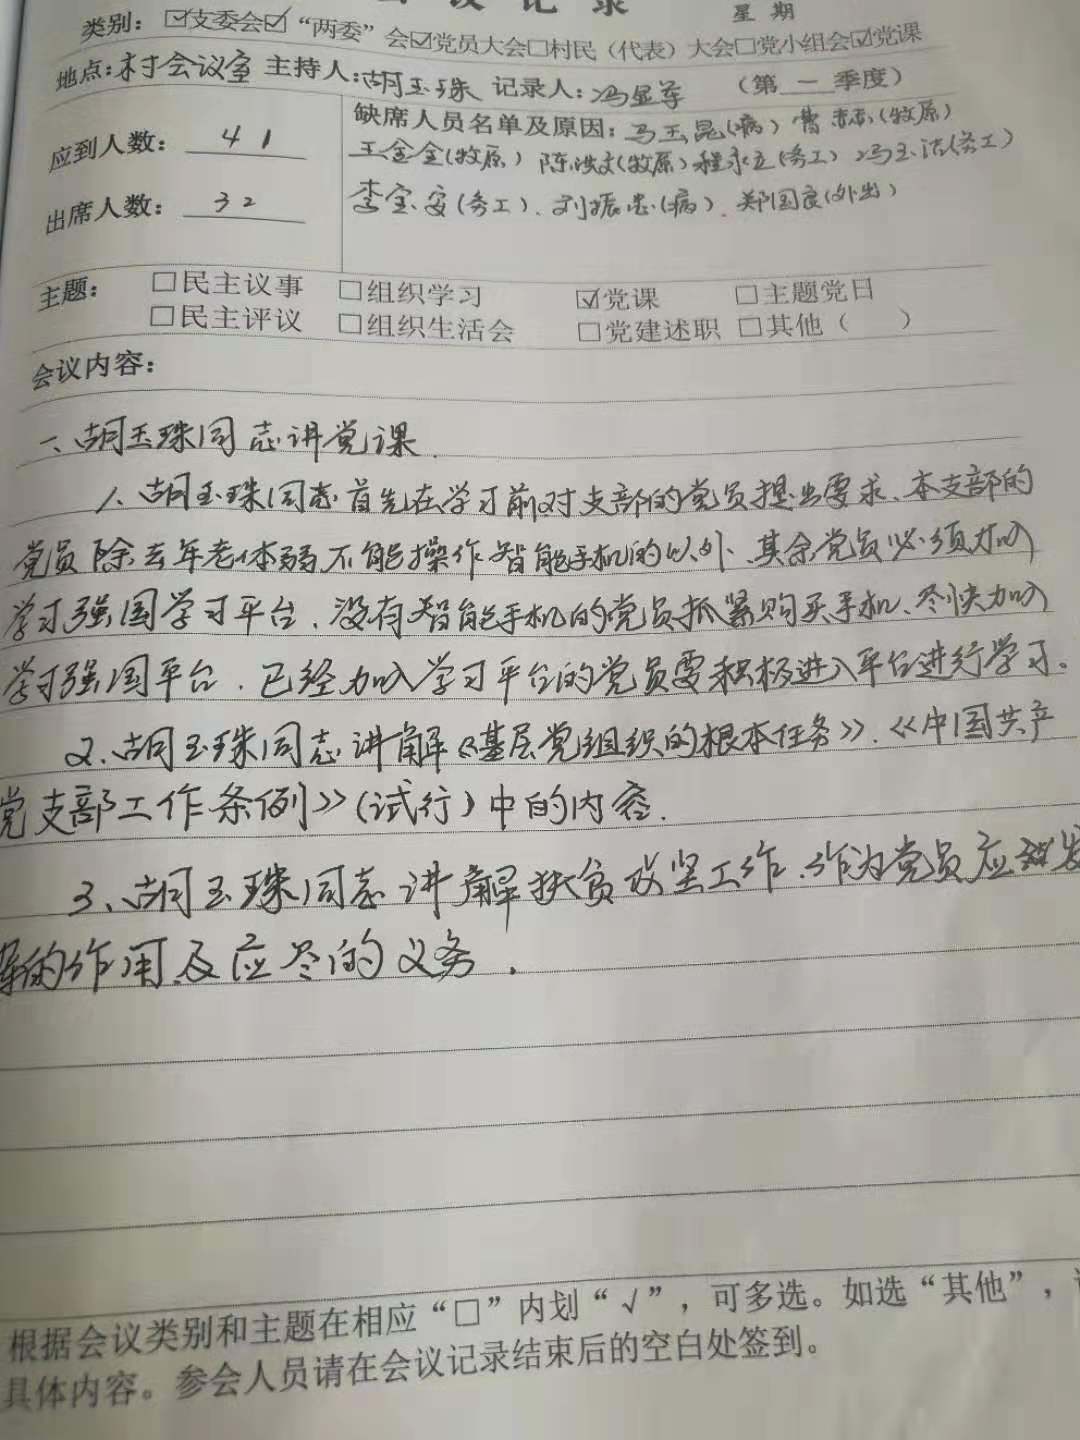 议 记 录
星 期
类别：☑支委会☑“两委”会☑党员大会□村民（代表）大会□党小组会☑党课
地点：村会议室 主持人：胡玉珠 记录人：冯显军 （第 一 季度）
应到人数： 41
缺席人员名单及原因：马玉昆(病) 曹 (牧原)
王金金(牧原) 陈洪文(牧原) 程永立(务工) 冯玉洁(务工)
出席人数： 32
李宝安(务工)、刘振忠(病)、郑国良(外出)
主题： □民主议事 □组织学习 ☑党课 □主题党日
□民主评议 □组织生活会 □党建述职 □其他（ ）
会议内容：
一、胡玉珠同志讲党课.
1、胡玉珠同志首先在学习前对支部的党员提出要求、本支部的
党员除去年老体弱不能操作智能手机的以外、其余党员必须加入
学习强国学习平台、没有智能手机的党员抓紧购买手机、尽快加入
学习强国平台、已经加入学习平台的党员要积极进入平台进行学习。
2、胡玉珠同志讲解《基层党组织的根本任务》、《中国共产
党支部工作条例》(试行)中的内容.
3、胡玉珠同志讲解扶贫攻坚工作、作为党员应该发
挥的作用及应尽的义务.
根据会议类别和主题在相应“□”内划“√”，可多选。如选“其他”，
具体内容。参会人员请在会议记录结束后的空白处签到。